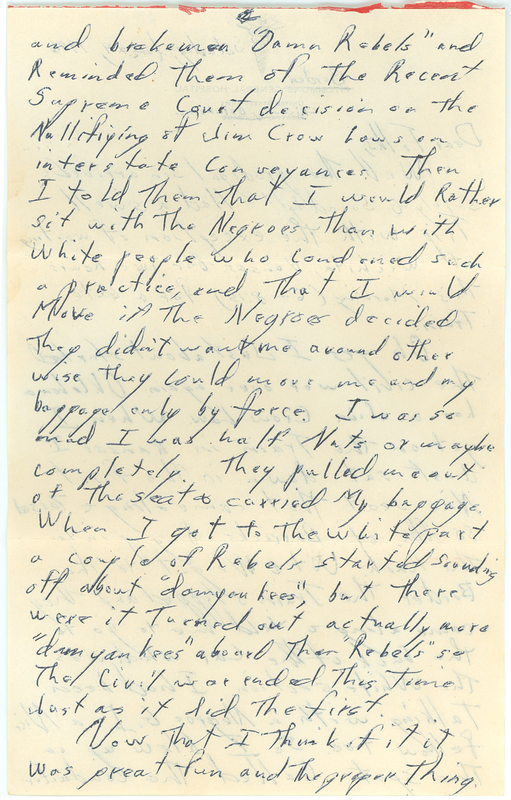 2
and brakemen "Damn Rebels" and
Reminded them of the Recent
Supreme Court decision on the
Nullifiying of Jim Crow Laws on
interstate Conveyances. Then
I told them that I would Rather
sit with The Negroes Than with
White people who condoned such
a practice, and That I would
Move if The Negroes decided
They didn't want me around other
wise they could move me and my
baggage only by force. I was so
mad I was half Nuts or maybe
completely. They pulled me out
of the seat & carried My baggage.
When I got to The white part
a couple of Rebels started sounding
off about "damyankees", but there
were it turned out actually more
"damyankees" aboard Than "Rebels" so
The Civil war ended This Time
Just as it did The first.
Now That I Think of it it
was great fun and the proper Thing.